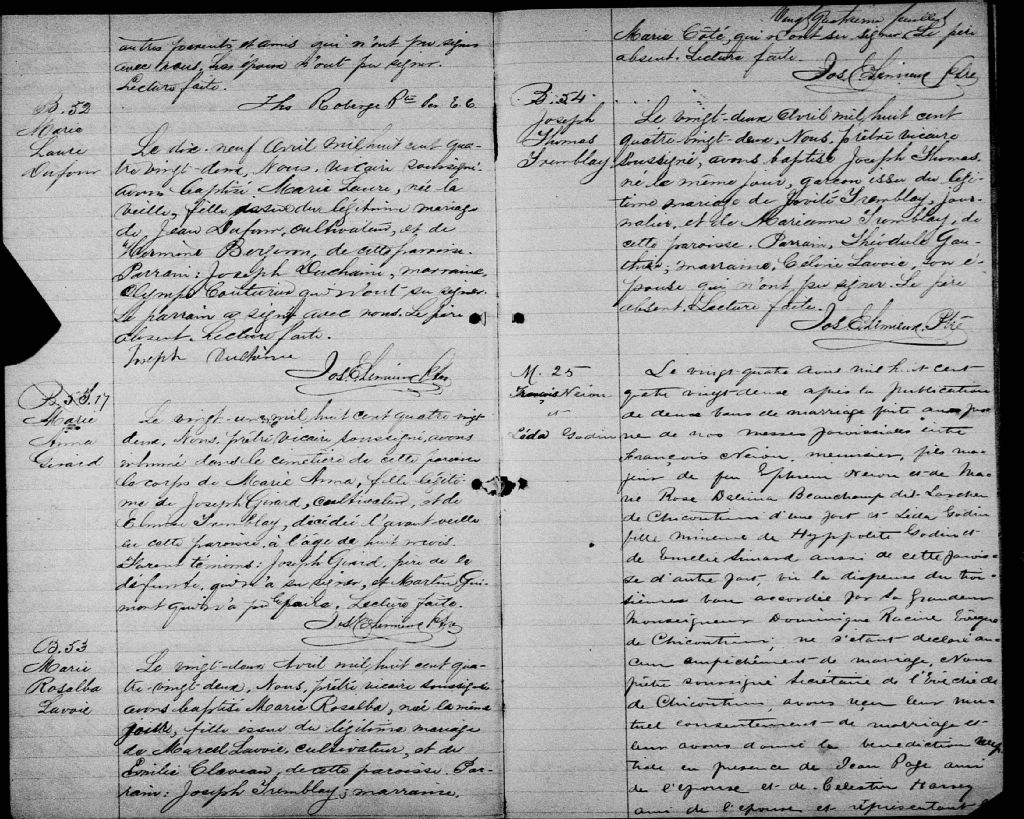 autres parents et amis qui n'ont pu signer
avec nous. Les époux n'ont pu signer.
Lecture faite.
Ths Roberge Ptre
B. 52
Marie
Laure
Dufour
Le dix-neuf Avril mil huit cent qua-
tre vingt-deux, Nous, vicaire soussigné
avons baptisé Marie Laure, née la
veille, fille issue du légitime mariage
de Jean Dufour, cultivateur, et de
Hermine Bergeron, de cette paroisse.
Parrain: Joseph Duchaine, marraine,
Olympe Couturier qui n'ont su signer.
Le parrain a signé avec nous. Le père
absent. Lecture faite.
Joseph Duchêne
Jos. E. Lemieux Ptre
S. 17
Marie
Anna
Girard
Le vingt-un mil huit cent quatre vingt
deux, Nous, prêtre vicaire soussigné, avons
inhumé dans le cimetière de cette paroisse
le corps de Marie Anna, fille légiti-
me de Joseph Girard, cultivateur, et de
Tremblay, décédée l'avant veille
en cette paroisse, à l'âge de huit mois.
Furent témoins: Joseph Girard, père de la
défunte, qui n'a su signer, et Martin Gui-
mont qui n'a pu le faire. Lecture faite.
Jos. E. Lemieux Ptre
B. 53
Marie
Rosalba
Lavoie
Le vingt-deux Avril mil huit cent qua-
tre vingt-deux, Nous, prêtre vicaire soussigné
avons baptisé Marie Rosalba, née le même
jour, fille issue du légitime mariage
de Marcel Lavoie, cultivateur, et de
Emilie Claveau, de cette paroisse. Par-
rain: Joseph Tremblay; marraine,
Vingt quatrième feuillet
Marie Côté, qui n'ont su signer. Le père
absent. Lecture faite.
Jos. E. Lemieux Ptre
B. 54
Joseph
Thomas
Tremblay
Le vingt-deux Avril mil huit cent
quatre-vingt-deux, Nous, prêtre vicaire
soussigné, avons baptisé Joseph Thomas,
né le même jour, garçon issu du légi-
time mariage de Jovite Tremblay, jour-
nalier, et de Marianne Tremblay, de
cette paroisse. Parrain, Théodule Gau-
thier; marraine, Célina Lavoie, son é-
pouse qui n'ont pu signer. Le père
absent. Lecture faite.
Jos. E. Lemieux, Ptre
M. 25
François Néron
et
Léda Godin
Le vingt-quatre Avril mil huit cent
quatre vingt-deux après la publication
de deux bans de mariage faite au prô-
ne de nos messes paroissiales entre
François Néron, meunier, fils ma-
jeur de feu Ephrem Néron et de Ma-
rie Rose Delima Beauchamp dit Larcher
de Chicoutimi d'une part et Léda Godin
fille mineure de Hyppolite Godin et
de Emelie Simard aussi de cette parois-
se d'autre part, vu la dispense du troi-
sième ban accordée par Sa Grandeur
Monseigneur Dominique Racine Evêque
de Chicoutimi; ne s'étant déclaré au-
cun empêchement de mariage, Nous
prêtre soussigné Secrétaire de l'Évêché de
de Chicoutimi, avons reçu leur mu-
tuel consentement de mariage et
leur avons donné la bénédiction nup-
tiale en présence de Jean Page ami
de l'épouse et de Celestin Harvey
ami de l'épouse et représentant